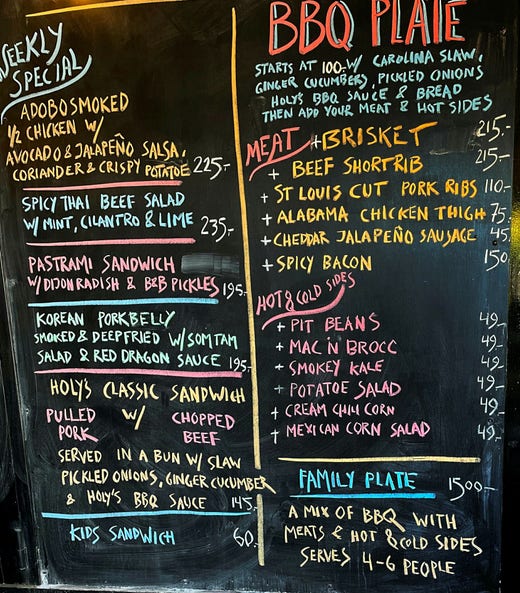 WEEKLY
SPECIAL
ADOBO SMOKED
1/2 CHICKEN W/
AVOCADO & JALAPEÑO SALSA,
CORIANDER & CRISPY POTATOE 225.-
SPICY THAI BEEF SALAD
W/ MINT, CILANTRO & LIME 235.-
PASTRAMI SANDWICH
W/ DIJON RADISH & B&B PICKLES 195.-
KOREAN PORKBELLY
SMOKED & DEEPFRIED W/ SOMTAM
SALAD & RED DRAGON SAUCE 195.-
HOLY'S CLASSIC SANDWICH
PULLED W/ CHOPPED
PORK BEEF
SERVED IN A BUN W/ SLAW
PICKLED ONIONS, GINGER CUCUMBER
& HOLY'S BBQ SAUCE 145.-
KIDS SANDWICH 60.-
BBQ PLATE
STARTS AT 100-W/ CAROLINA SLAW,
GINGER CUCUMBERS, PICKLED ONIONS
HOLY'S BBQ SAUCE & BREAD
THEN ADD YOUR MEAT & HOT SIDES
MEAT + BRISKET 215.-
+ BEEF SHORTRIB 215.-
+ ST LOUIS CUT PORK RIBS 110.-
+ ALABAMA CHICKEN THIGH 75.-
+ CHEDDAR JALAPEÑO SAUSAGE 45.
+ SPICY BACON 150
HOT & COLD SIDES
+ PIT BEANS 49.-
+ MAC N BROCC 49.-
+ SMOKEY KALE 49.-
+ POTATOE SALAD 49.-
+ CREAM CHILI CORN 49.-
+ MEXICAN CORN SALAD 49.-
FAMILY PLATE 1500.-
A MIX OF BBQ WITH
MEATS & HOT & COLD SIDES
SERVES 4-6 PEOPLE